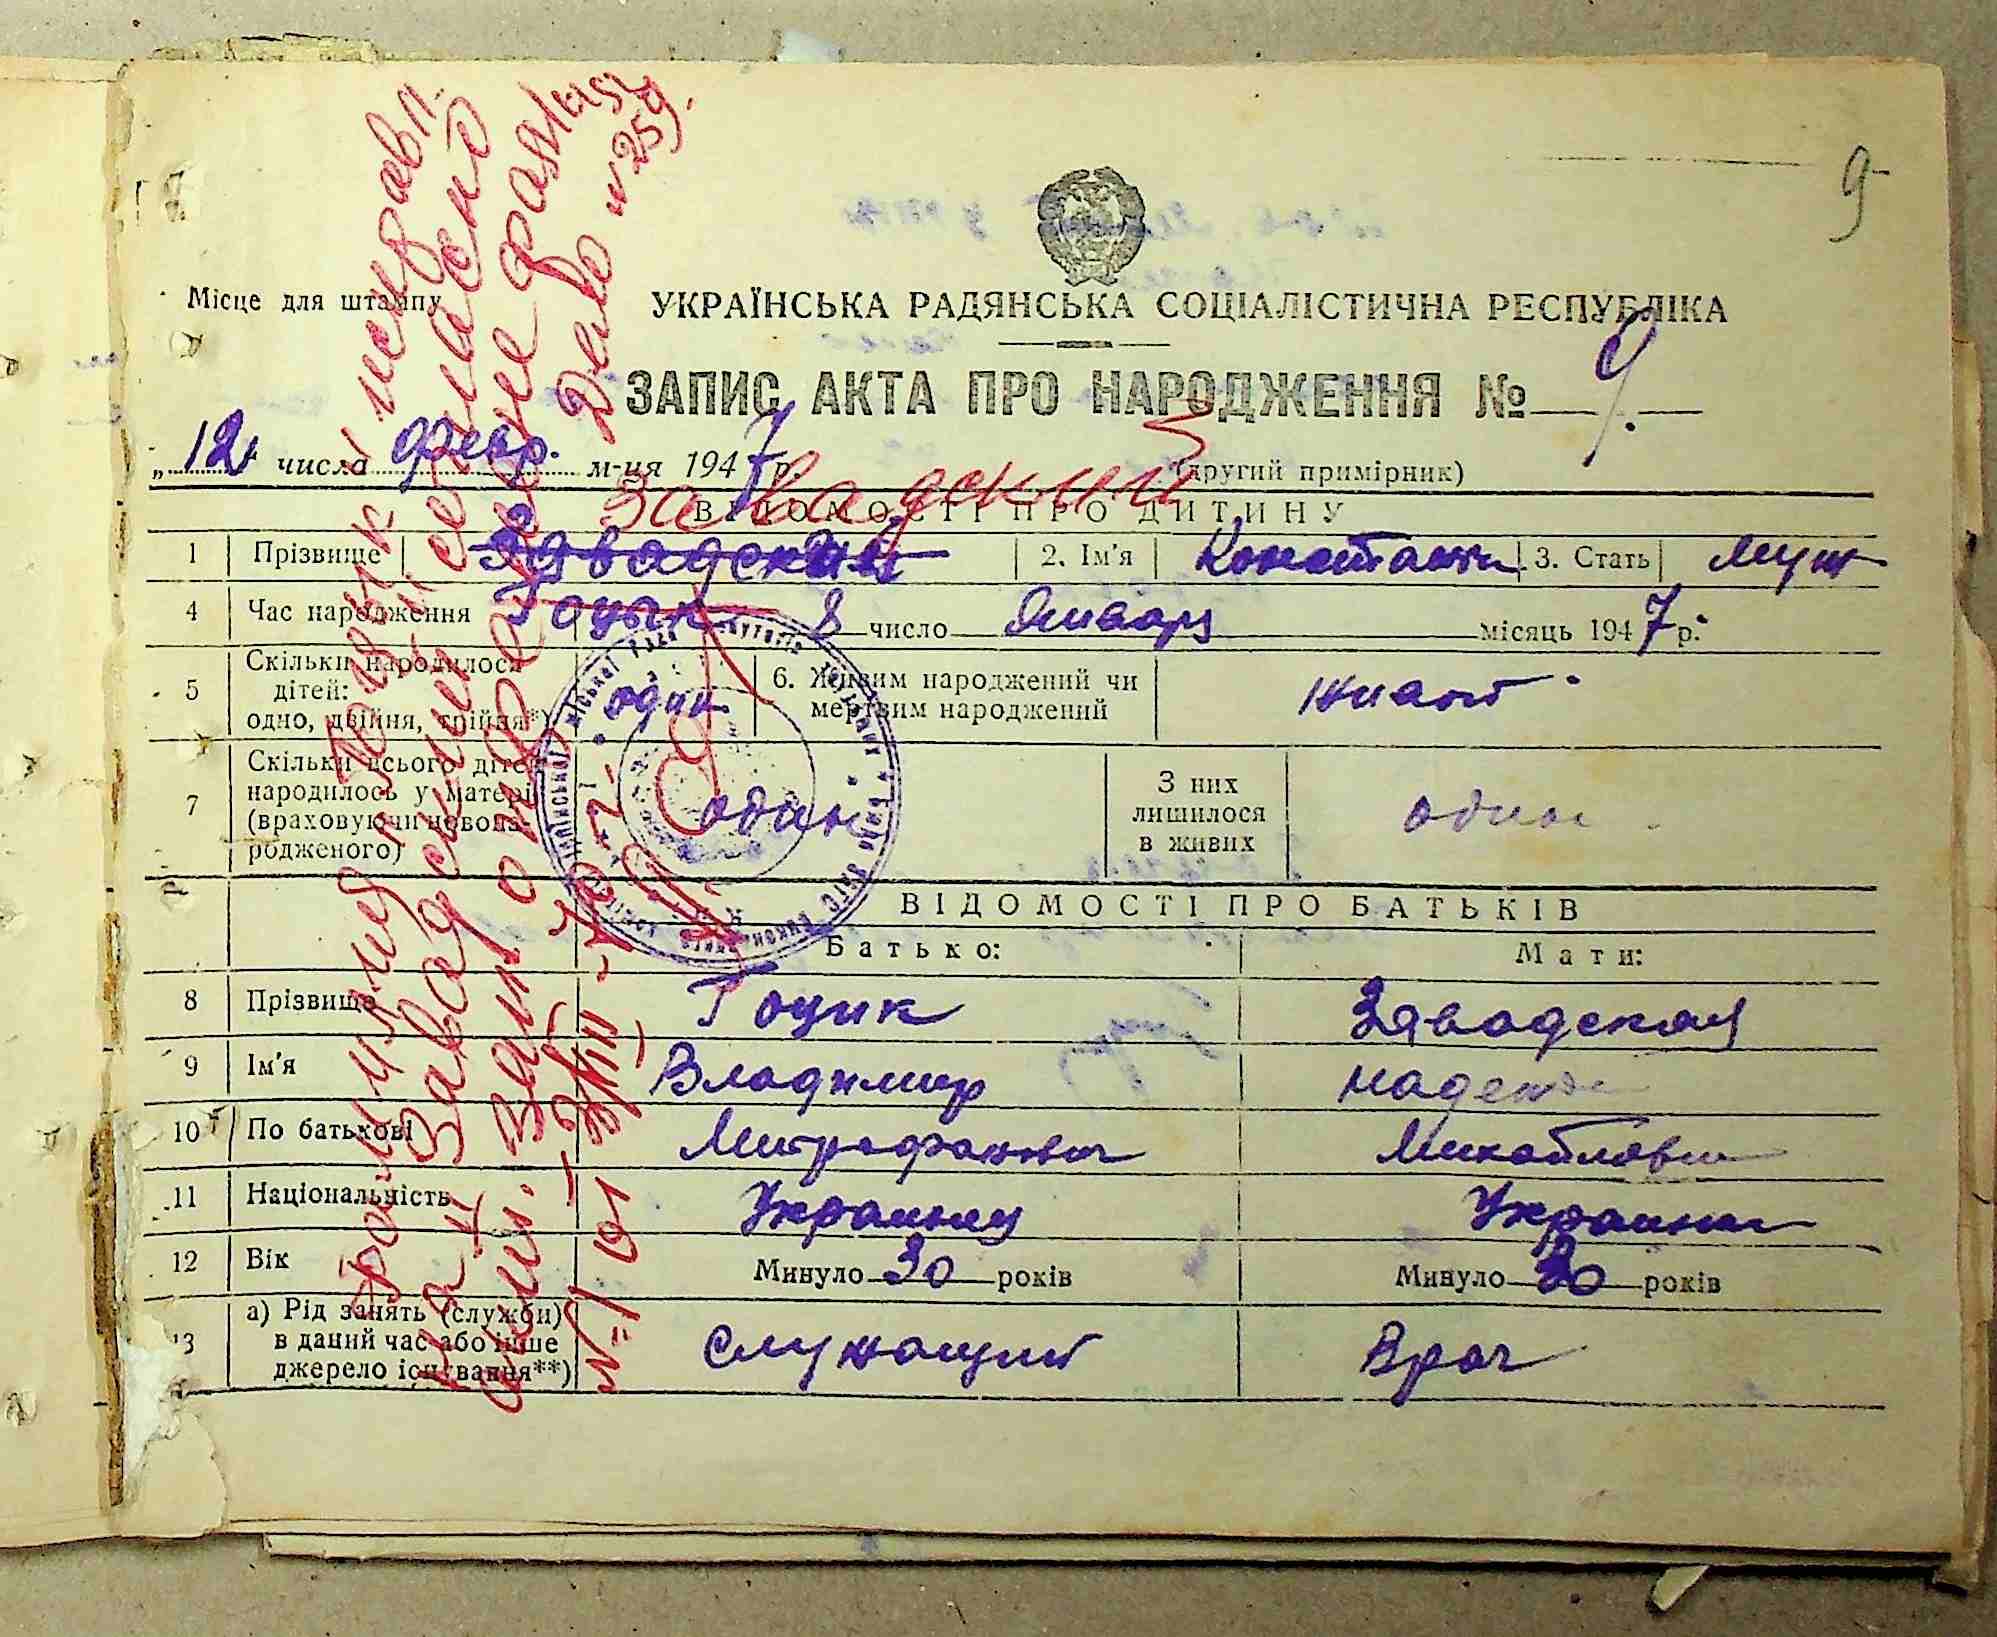 9
Місце для штампу
УКРАЇНСЬКА РАДЯНСЬКА СОЦІАЛІСТИЧНА РЕСПУБЛІКА
ЗАПИС АКТА ПРО НАРОДЖЕННЯ № 9.
„12" числа февр. м-ця 1947 р.
(другий примірник)
Завадский
ВІДОМОСТІ ПРО ДИТИНУ
1 Прізвище Завадский 2. Ім'я Константин 3. Стать муж
4 Час народження Гоцык 8 число Января місяць 1947 р.
5 Скільки народилося дітей: одно, двійня, трійня*) один 6. Живим народжений чи мертвим народжений живой
7 Скільки всього дітей народилось у матері (враховуючи новонародженого) один З них лишилося в живих один
ВІДОМОСТІ ПРО БАТЬКІВ
Батько: Мати:
8 Прізвище Гоцик Завадская
9 Ім'я Владимир Надежда
10 По батькові Митрофанович Михайловна
11 Національність Украинец Украинка
12 Вік Минуло 30 років Минуло 30 років
13 а) Рід занять (служби) в даний час або інше джерело існування**) служащий Врач
фамилия Гоцык исправл.
на Завадский согласно
фамилии
Дело № 259.